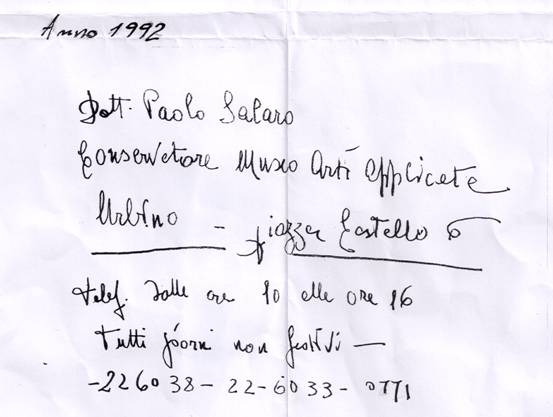 Anno 1992
Dott. Paolo Salaro
Conservatore Museo Arti Applicate
Urbino - piazza Castello 6
telef. dalle ore 10 alle ore 16
tutti giorni non festivi —
-226038-22-6033-0771